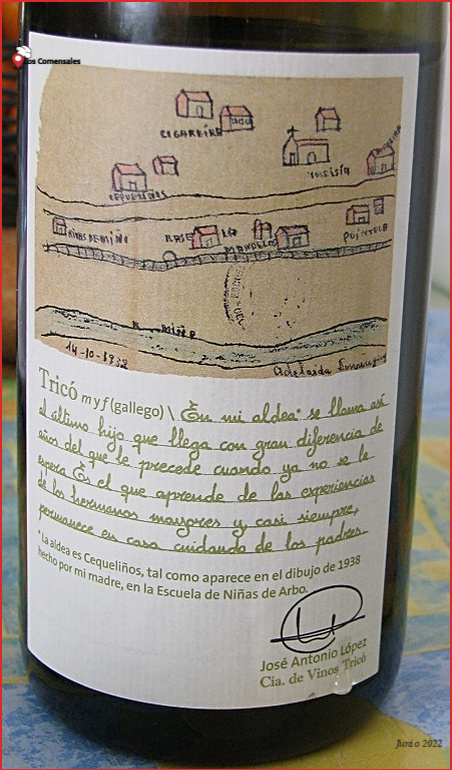 Los Comensales
COGARREIRA
IGLESIA
CEQUELIÑOS
RIVAS DE MIÑO
MANDELOS
POINTELA
MIÑO
14-10-1938
Adelaida
Tricó m y f (gallego) \ En mi aldea* se llama así
el último hijo que llega con gran diferencia de
años del que le precede cuando ya no se le
espera. Es el que aprende de las experiencias
de los hermanos mayores y, casi siempre,
permanece en casa cuidando de los padres.
*La aldea es Cequeliños, tal como aparece en el dibujo de 1938
hecho por mi madre, en la Escuela de Niñas de Arbo.
José Antonio López
Cía. de Vinos Tricó
Junio 2022